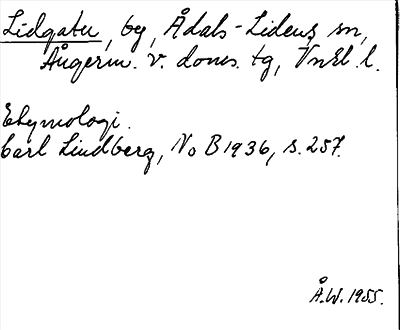 Lidgatu, by, Ådals-Lidens sn,
Ångerm. v. doms. tg, Vnrl. l.
Etymologi.
Carl Lindberg, No B 1936, s. 257.
Å.W. 1955.